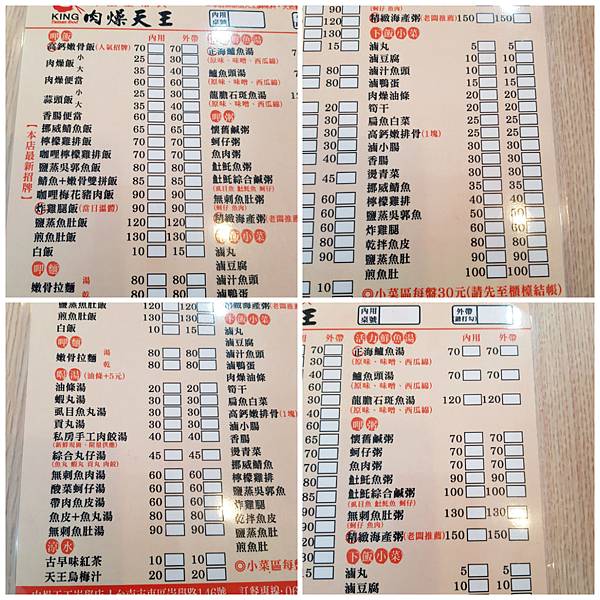 KING 肉燥天王
內用 桌號
呷飯 內用 外帶
高鈣嫩骨飯(人氣招牌) 70 70
肉燥飯 小 25 25
大 30 30
肉燥便當 60 60
蒜頭飯 小 35 35
大 40 40
香腸便當 60 60
挪威鯖魚飯 65 65
檸檬雞排飯 70 70
咖哩檸檬雞排飯 70 70
鹽蒸吳郭魚飯 80 80
鯖魚+嫩骨雙拼飯 85 85
咖哩梅花豬肉飯 90 90
炸雞腿飯(當日溫體) 90 90
鹽蒸魚肚飯 120 120
煎魚肚飯 130 130
白飯 10 15
【本店最新招牌】
呷麵
嫩骨拉麵 湯 80 80
乾 80 80
正海鱸魚湯
(原味、味噌、西瓜綿)
鱸魚頭湯
(原味、味噌、西瓜綿)
龍膽石斑魚湯
(原味、味噌、西瓜綿)
呷粥
懷舊鹹粥
蚵仔粥
魚肉粥
魠魠魚粥
魠魠綜合鹹粥
(虱目魚 魠魠魚 蚵仔)
無刺魚肚粥
(蚵仔 魚肉)
精緻海產粥(老闆推薦)
下飯小菜
滷丸
滷豆腐
滷汁魚頭
滷鴨蛋
精緻海產粥(老闆推薦) 150 150
下飯小菜
滷丸 5 5
滷豆腐 10 10
滷汁魚頭 10 10
滷鴨蛋 15 15
肉燥油條
筍干 20 20
扁魚白菜 25 25
高鈣嫩排骨(1塊)
滷小腸 30 30
香腸 30 30
燙青菜 30 30
挪威鯖魚 35 35
檸檬雞排 40 40
鹽蒸吳郭魚 50 50
炸雞腿 60 60
乾拌魚皮 80 80
鹽蒸魚肚 90 90
煎魚肚 100 100
◎小菜區每盤30元(請先至櫃檯結帳)
鹽蒸魚肚飯 120 120
煎魚肚飯 130 130
白飯 10 15
呷麵
嫩骨拉麵 湯 80 80
乾 80 80
(油條+5元)
油條湯 20 20
蝦丸湯 30 30
虱目魚丸湯 30 30
貢丸湯 30 30
私房手工肉餃湯 40 40
(新鮮現做、限量供應)
綜合丸仔湯 45 45
(魚丸 蝦丸 貢丸 肉餃)
無刺魚肉湯 60 60
酸菜蚵仔湯 60 60
帶肉魚皮湯 60 60
魚皮+魚丸湯 90 90
無刺魚肚湯 90 90
涼水
古早味紅茶 10 10
天王烏梅汁 20 20
精緻海產粥(老闆推薦)
下飯小菜
滷丸
滷豆腐
滷汁魚頭
滷鴨蛋
肉燥油條
筍干
扁魚白菜
高鈣嫩排骨(1塊)
滷小腸
香腸
燙青菜
挪威鯖魚
檸檬雞排
鹽蒸吳郭魚
炸雞腿
乾拌魚皮
鹽蒸魚肚
煎魚肚
◎小菜區每盤
146號 訂餐專線:06
王 內用 桌號 外帶
活力鮮魚湯 內用 外帶
正海鱸魚湯 70 70
(原味、味噌、西瓜綿)
鱸魚頭湯 70 70
(原味、味噌、西瓜綿)
龍膽石斑魚湯 120 120
(原味、味噌、西瓜綿)
呷粥
懷舊鹹粥 70 70
蚵仔粥 70 70
魚肉粥 70 70
魠魠魚粥 100 100
魠魠綜合鹹粥 100 100
(虱目魚 魠魠魚 蚵仔)
無刺魚肚粥 130 130
(蚵仔 魚肉)
精緻海產粥(老闆推薦) 150 150
下飯小菜
滷丸 5 5
滷豆腐 10 10